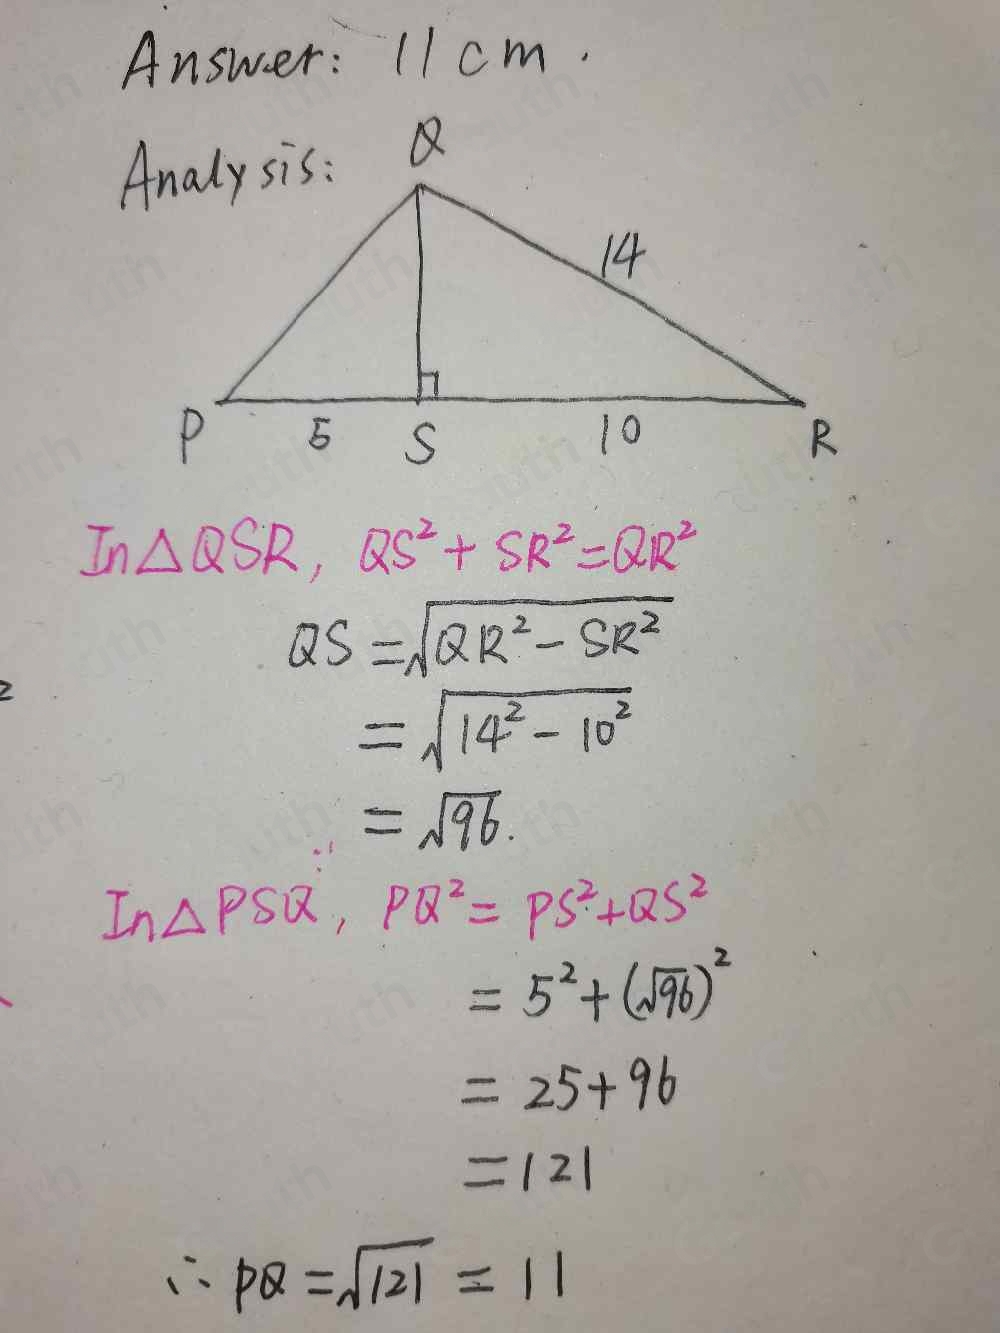 Answer: 11cm.
Analysis:
Q
14
P 5 S 10 R
In△QSR, QS²+SR²=QR²
QS=√(QR²-SR²)
=√(14²-10²)
=√96.
In△PSQ, PQ²=PS²+QS²
=5²+(√96)²
=25+96
=121
∴PQ=√121=11
2